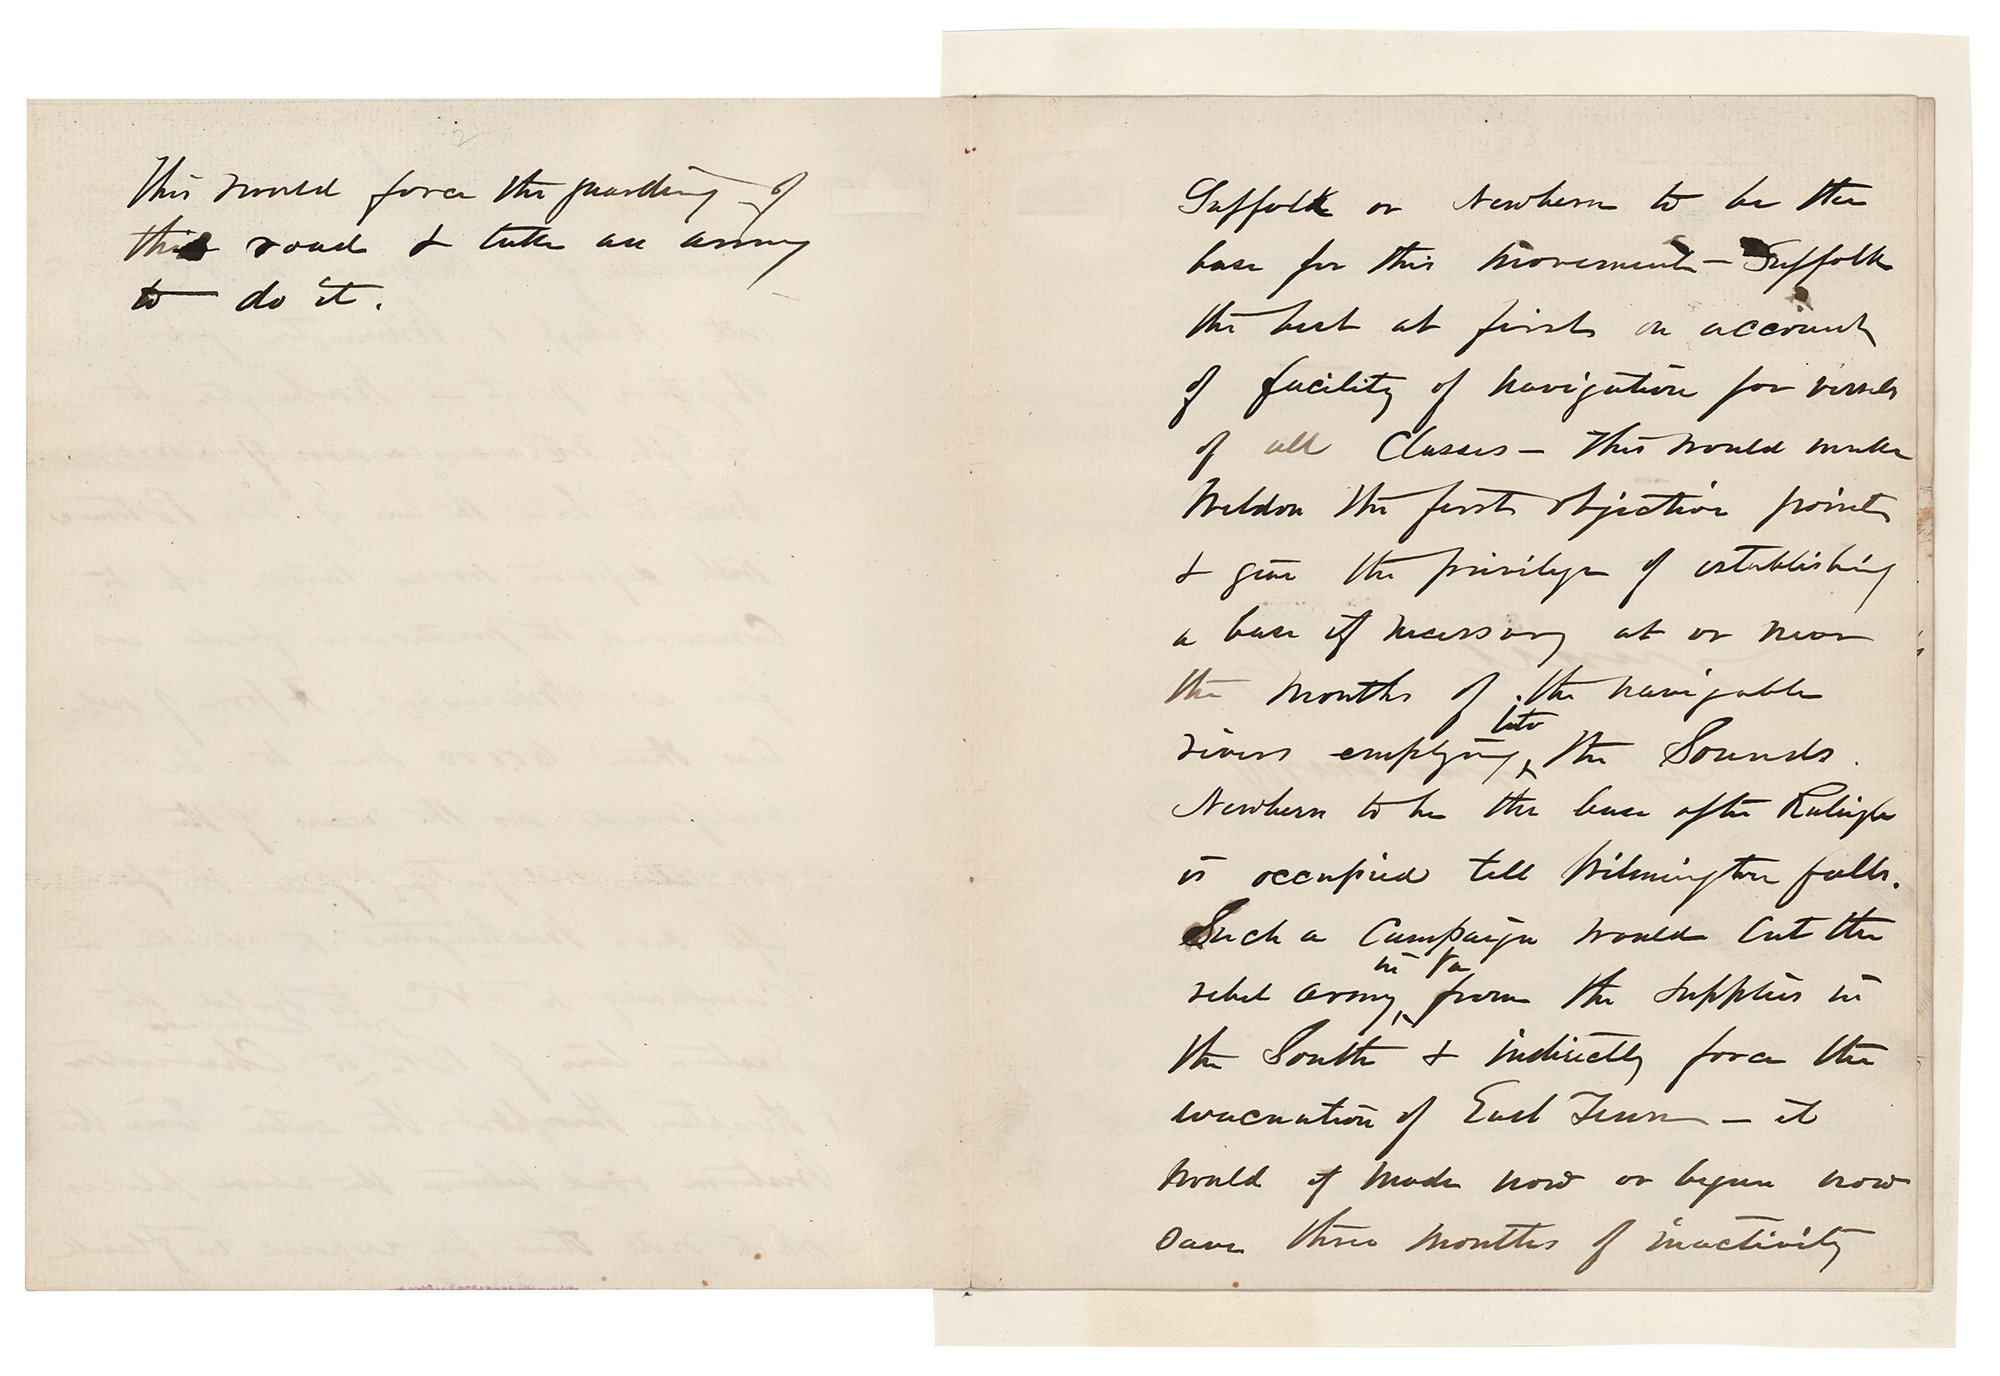 2
This would force the guarding of
this road & take an army
to do it.
Suffolk or Newbern to be the
base for this movement – Suffolk
the best at first on account
of facility of navigation for vessels
of all Classes – This would make
Weldon the first objective point
& give the privilege of establishing
a base if necessary at or near
the mouths of the navigable
into
rivers emptying ‸ the Sounds.
Newbern to be the base after Raleigh
is occupied till Wilmington falls.
Such a Campaign would Cut the
in Va
rebel army ‸ from the supplies in
the South & indirectly force the
evacuation of East Tenn – it
would if made now or begun now
save three months of inactivity